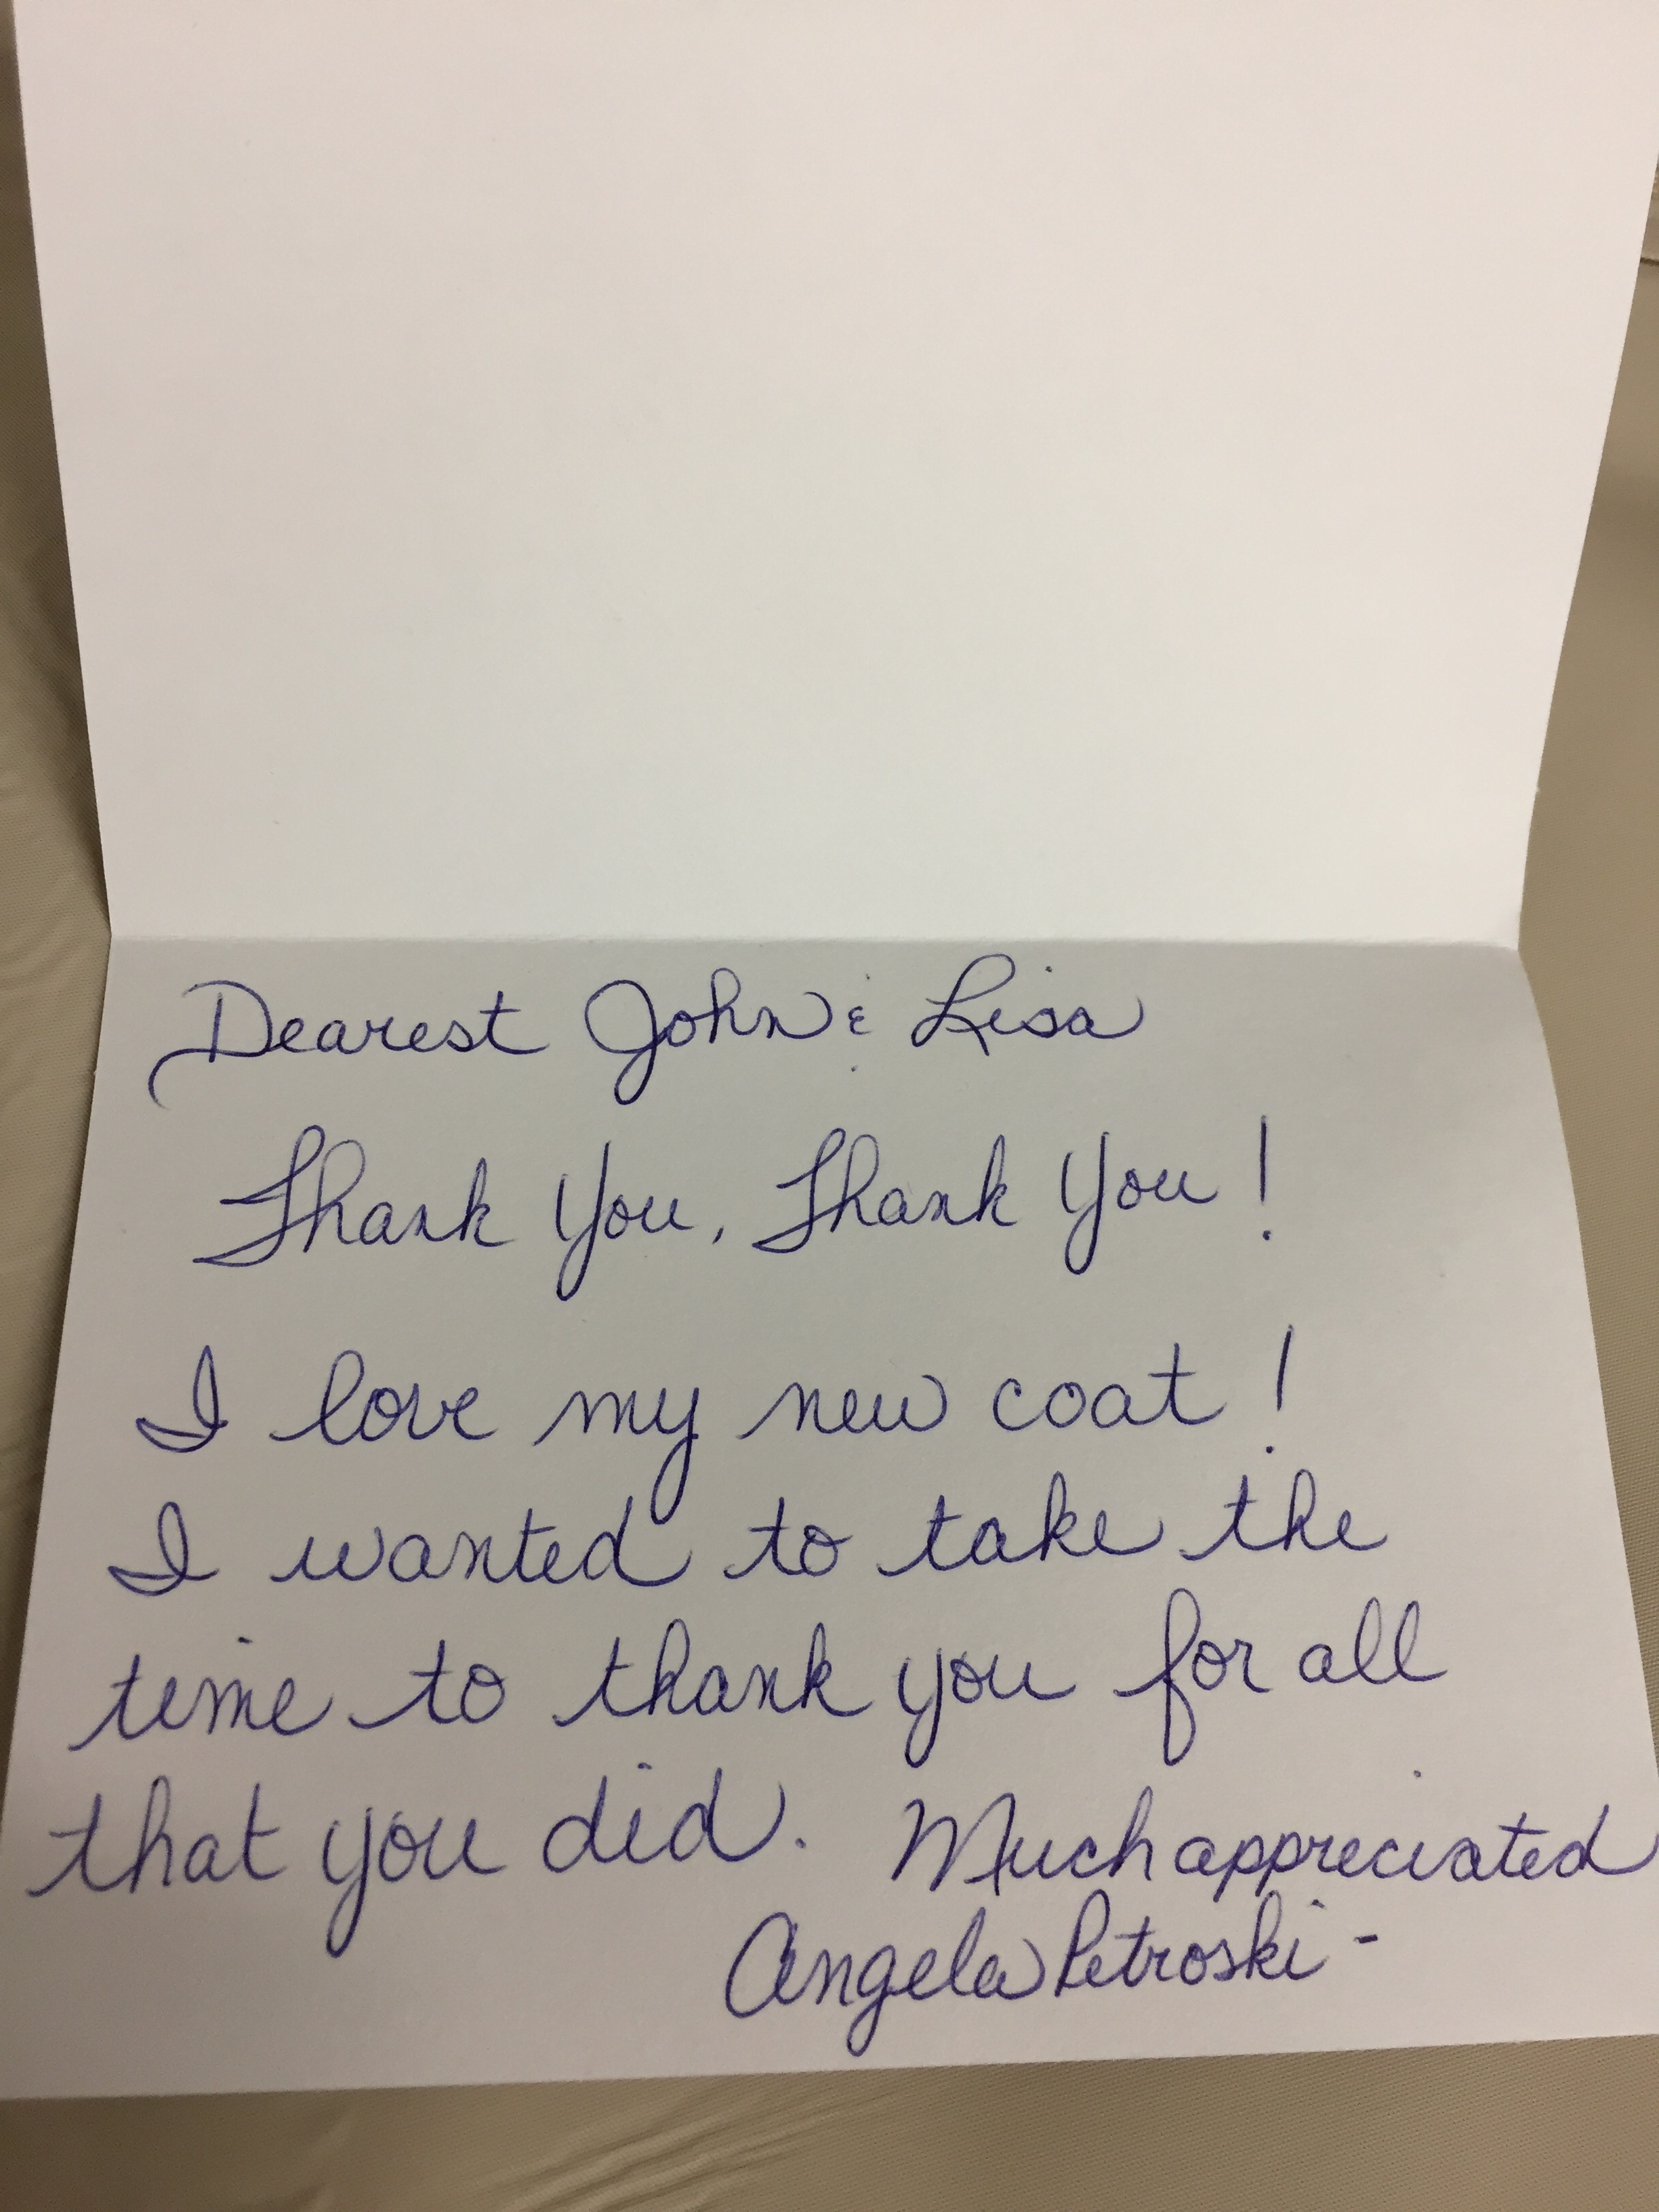 Dearest John & Lisa
Thank You, Thank You!
I love my new coat!
I wanted to take the
time to thank you for all
that you did. Much appreciated
Angela Petroski -